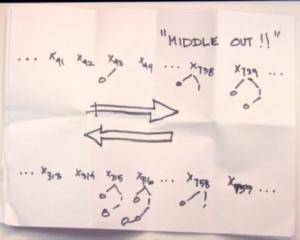 "MIDDLE OUT!!"
... X₉₁ X₉₂ X₉₃ X₉₄ ... X₇₃₈ X₇₃₉ ...
... X₃₁₃ X₃₁₄ X₃₁₅ X₃₁₆ ... X₇₅₈ ...